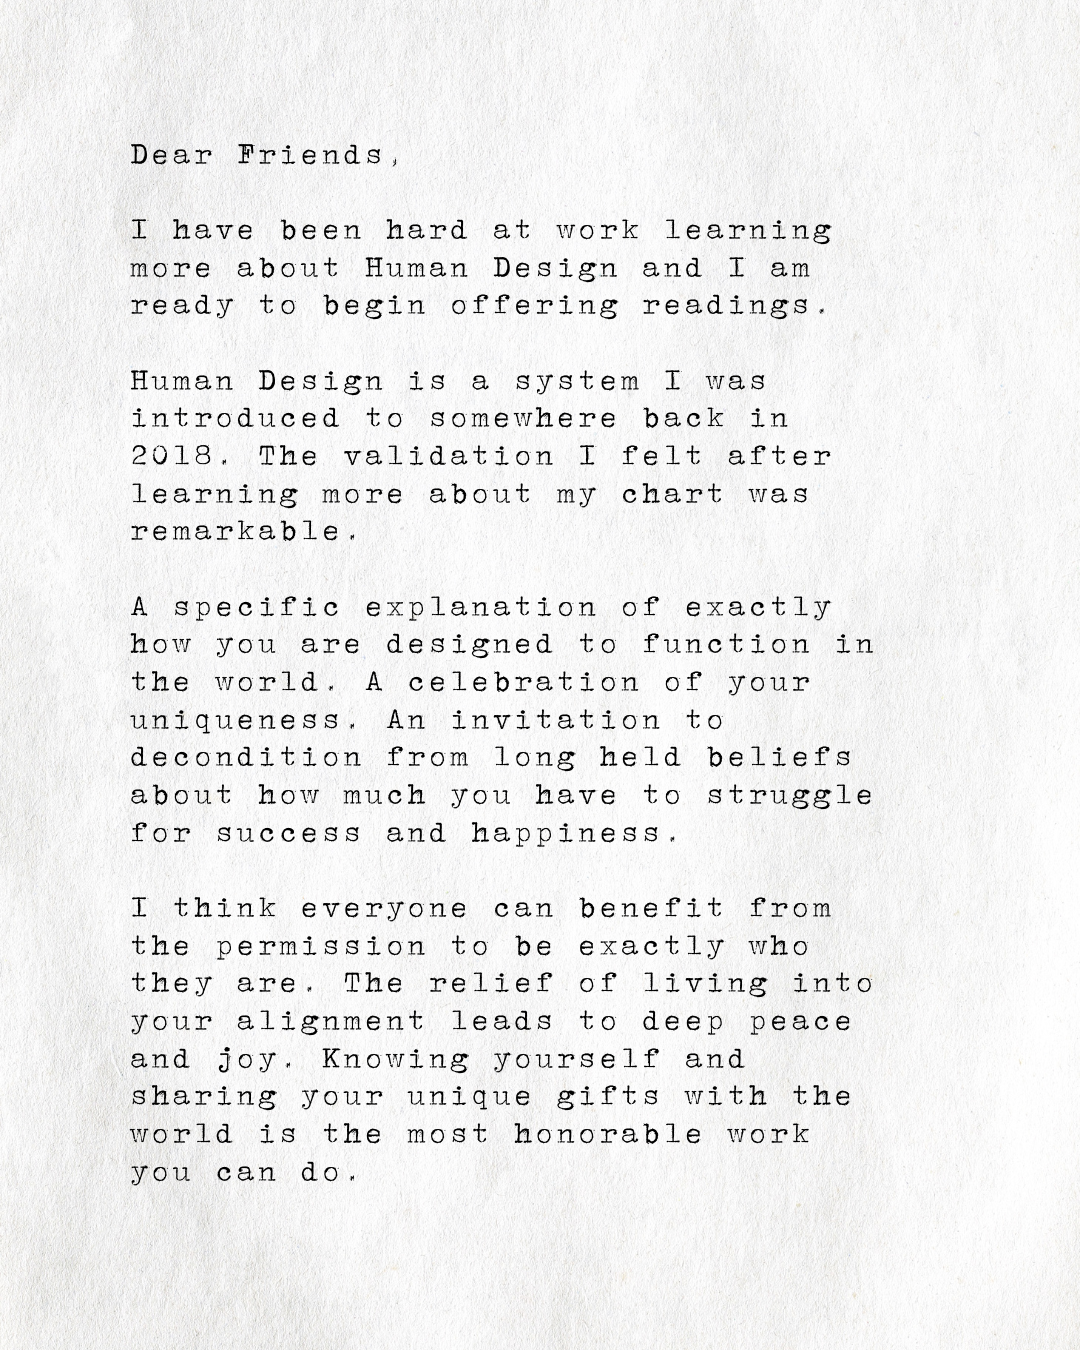 Dear Friends,
I have been hard at work learning
more about Human Design and I am
ready to begin offering readings.
Human Design is a system I was
introduced to somewhere back in
2018. The validation I felt after
learning more about my chart was
remarkable.
A specific explanation of exactly
how you are designed to function in
the world. A celebration of your
uniqueness. An invitation to
decondition from long held beliefs
about how much you have to struggle
for success and happiness.
I think everyone can benefit from
the permission to be exactly who
they are. The relief of living into
your alignment leads to deep peace
and joy. Knowing yourself and
sharing your unique gifts with the
world is the most honorable work
you can do.